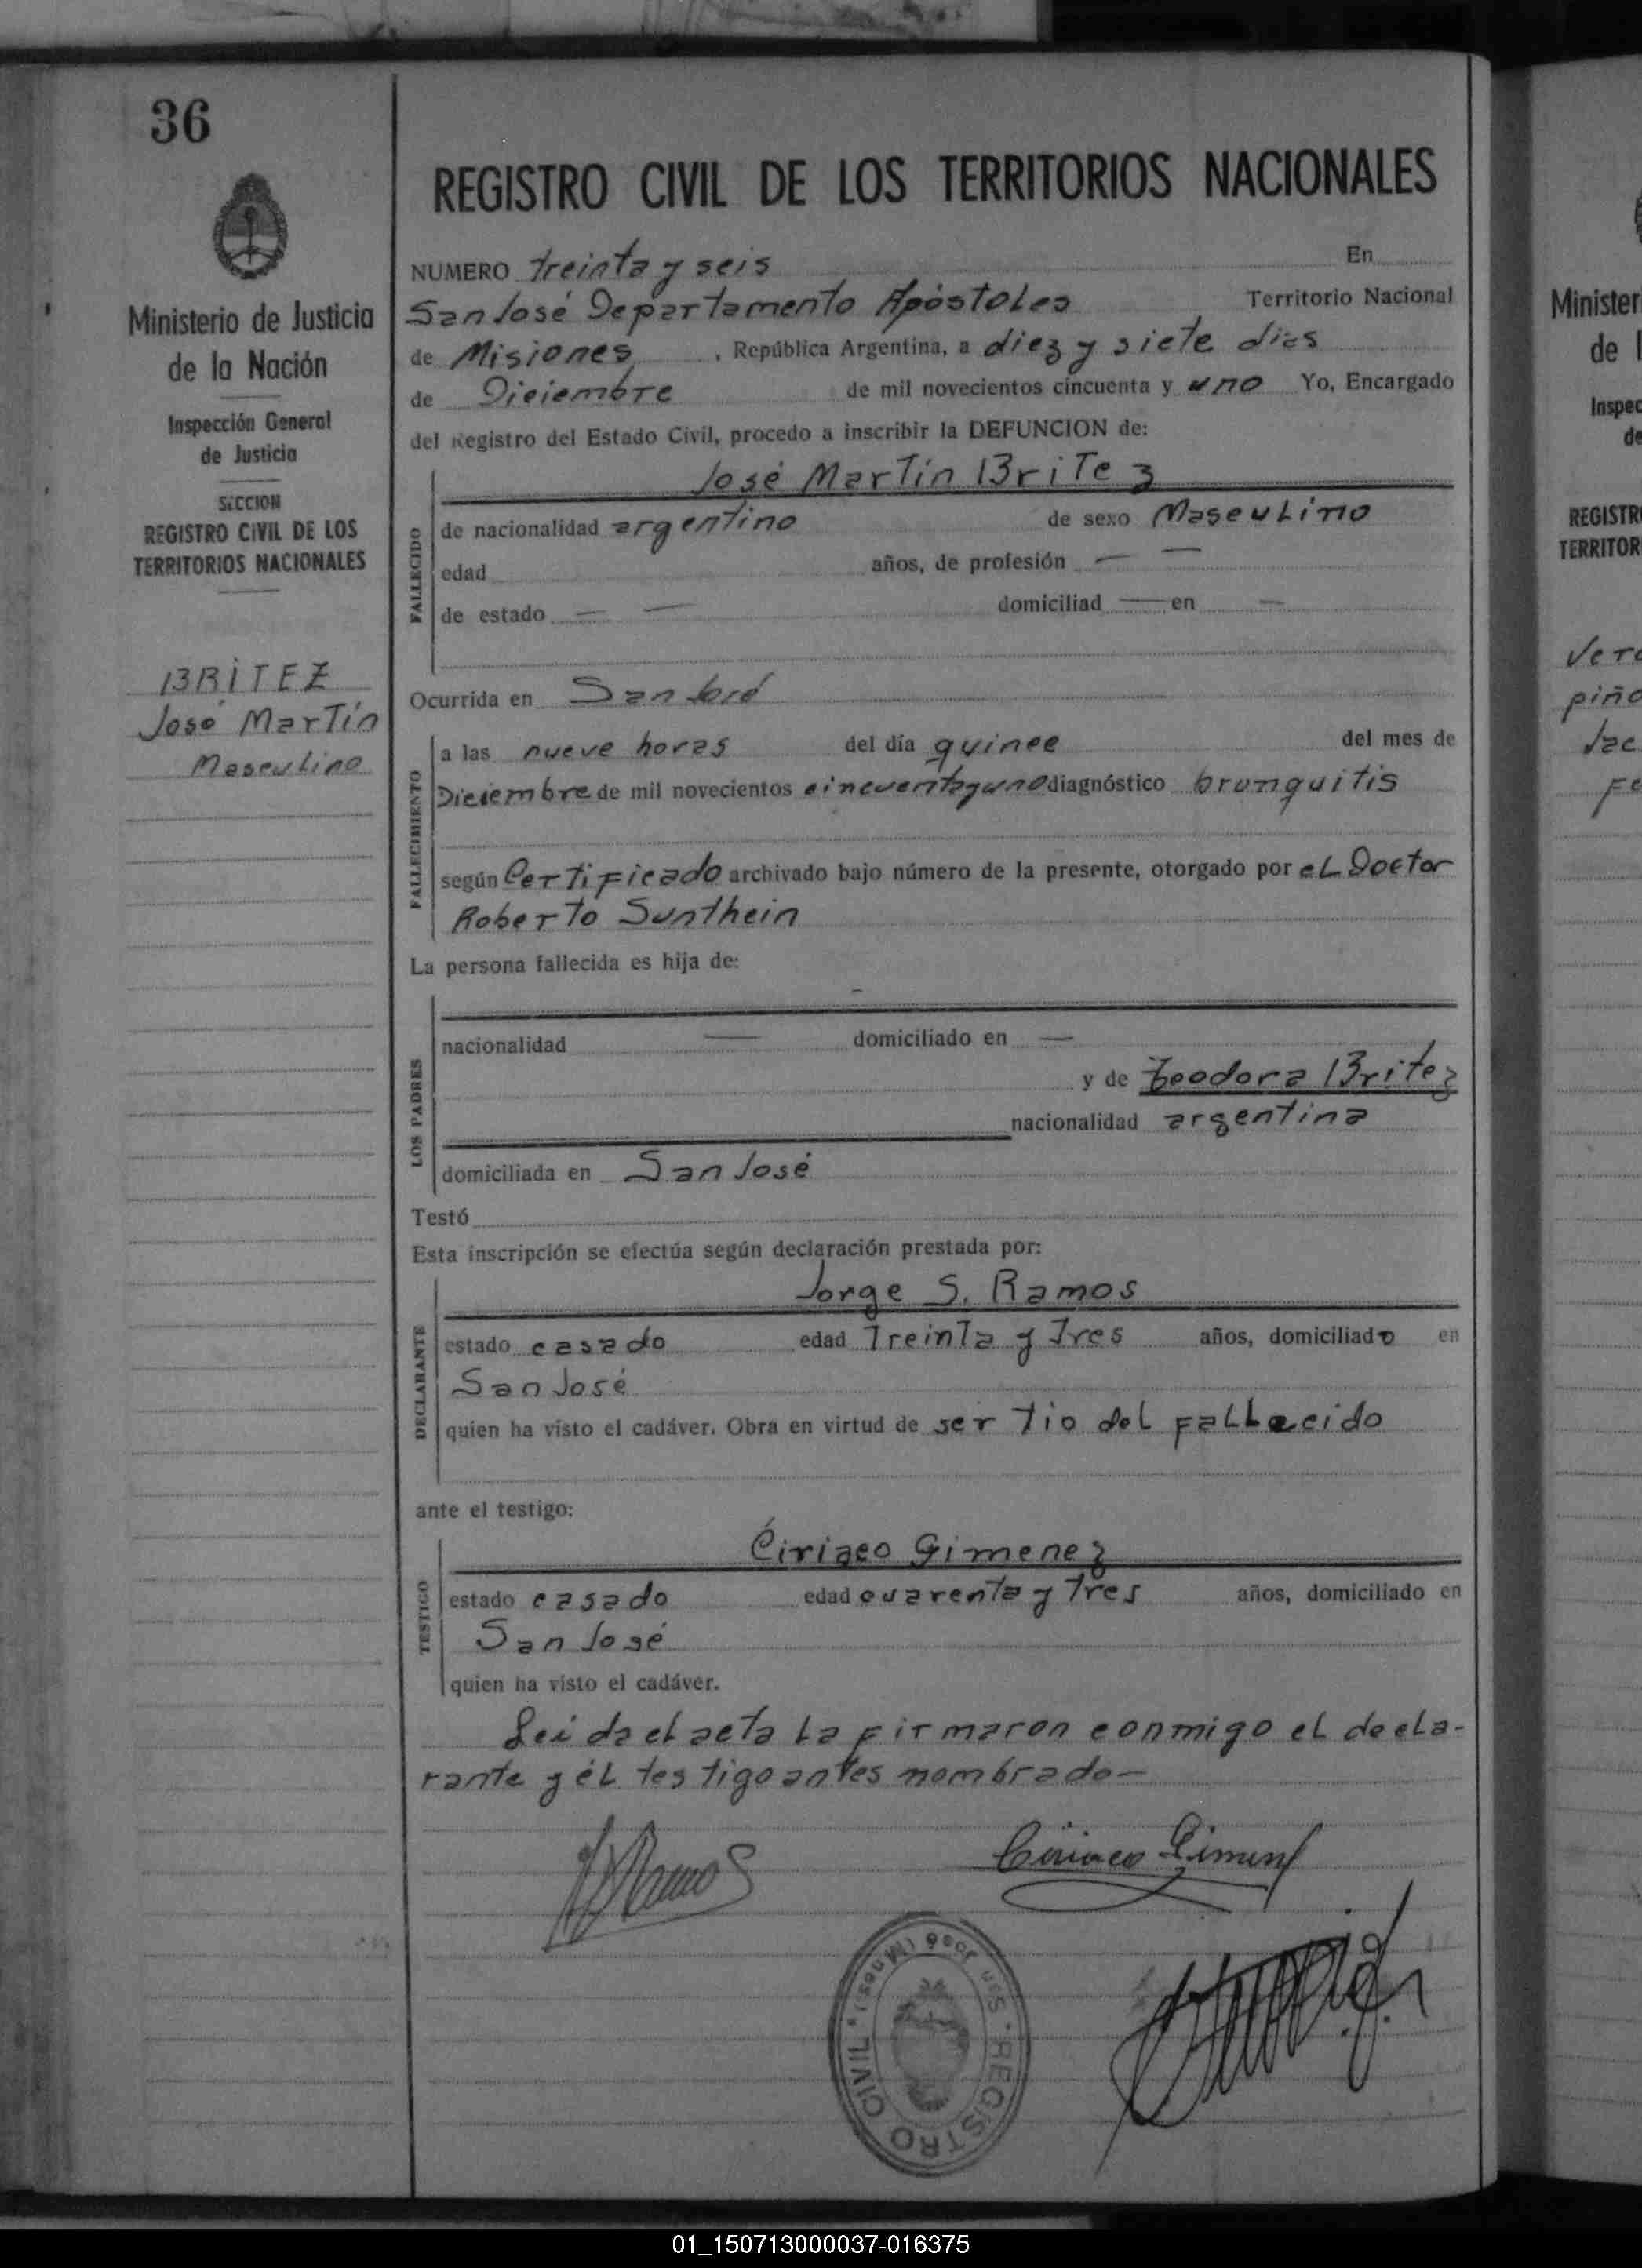 36
Ministerio de Justicia
de la Nación
Inspección General
de Justicia
SECCION
REGISTRO CIVIL DE LOS
TERRITORIOS NACIONALES
BRITEZ
José Martín
Maseulino
REGISTRO CIVIL DE LOS TERRITORIOS NACIONALES
NUMERO treinta y seis En
San José Departamento Apóstoles Territorio Nacional
de Misiones, República Argentina, a diez y siete dias
de Diciembre de mil novecientos cincuenta y uno Yo, Encargado
del Registro del Estado Civil, procedo a inscribir la DEFUNCION de:
José Martín Britez
FALLECIDO
de nacionalidad argentino de sexo Maseulino
edad años, de profesión — —
de estado — — domiciliad — en —
Ocurrida en San José
FALLECIMIENTO
a las nueve horas del día quince del mes de
Diciembre de mil novecientos cincuenta y uno diagnóstico bronquitis
según Certificado archivado bajo número de la presente, otorgado por el Doctor
Roberto Sunthein
La persona fallecida es hija de:
LOS PADRES
nacionalidad — domiciliado en —
y de Teodora Britez
nacionalidad argentina
domiciliada en San José
Testó
Esta inscripción se efectúa según declaración prestada por:
Jorge S. Ramos
DECLARANTE
estado casado edad Treinta y Tres años, domiciliado en
San José
quien ha visto el cadáver. Obra en virtud de ser Tio del fallecido
ante el testigo:
Ciriaco Gimenez
TESTIGO
estado casado edad cuarenta y Tres años, domiciliado en
San José
quien ha visto el cadáver.
Leida el acta la firmaron conmigo el decla-
rante y él testigo antes nombrado—
Ramos
Ciriaco Gimenez
REGISTRO CIVIL • San José (Mnes.) •
Minister
de l
Inspec
de
REGISTR
TERRITOR
Vera
piña
Jac
Fe
01_150713000037-016375